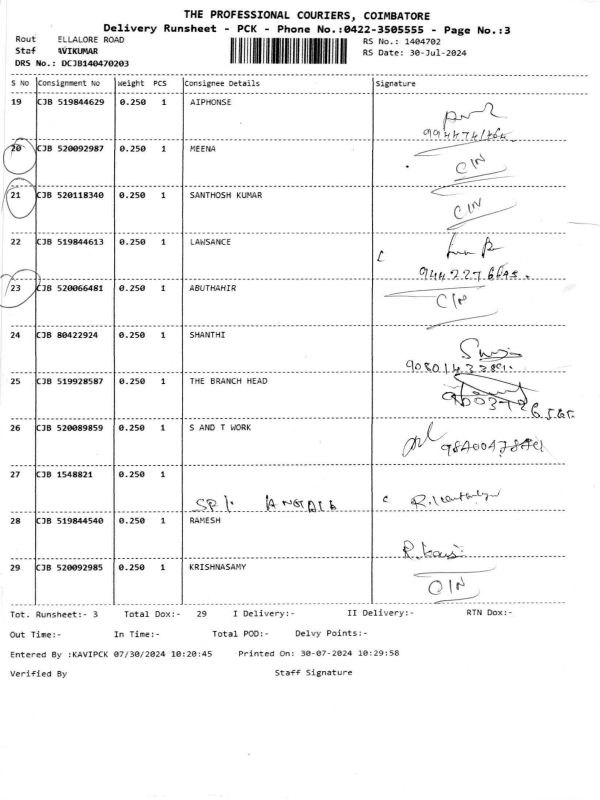 THE PROFESSIONAL COURIERS, COIMBATORE
Delivery Runsheet - PCK - Phone No.:0422-3505555 - Page No.:3
Rout ELLALORE ROAD RS No.: 1404702
Staf AVIKUMAR RS Date: 30-Jul-2024
DRS No.: DCJB140470203
S No Consignment No Weight PCS Consignee Details Signature
19 CJB 519844629 0.250 1 AIPHONSE
20 CJB 520092987 0.250 1 MEENA
CIN
21 CJB 520118340 0.250 1 SANTHOSH KUMAR
CIN
22 CJB 519844613 0.250 1 LAWSANCE
23 CJB 520066481 0.250 1 ABUTHAHIR
CIN
24 CJB 80422924 0.250 1 SHANTHI
25 CJB 519928587 0.250 1 THE BRANCH HEAD
26 CJB 520089859 0.250 1 S AND T WORK
27 CJB 1548821 0.250 1
28 CJB 519844540 0.250 1 RAMESH
29 CJB 520092985 0.250 1 KRISHNASAMY
CIN
Tot. Runsheet:- 3 Total Dox:- 29 I Delivery:- II Delivery:- RTN Dox:-
Out Time:- In Time:- Total POD:- Delvy Points:-
Entered By :KAVIPCK 07/30/2024 10:20:45 Printed On: 30-07-2024 10:29:58
Verified By Staff Signature